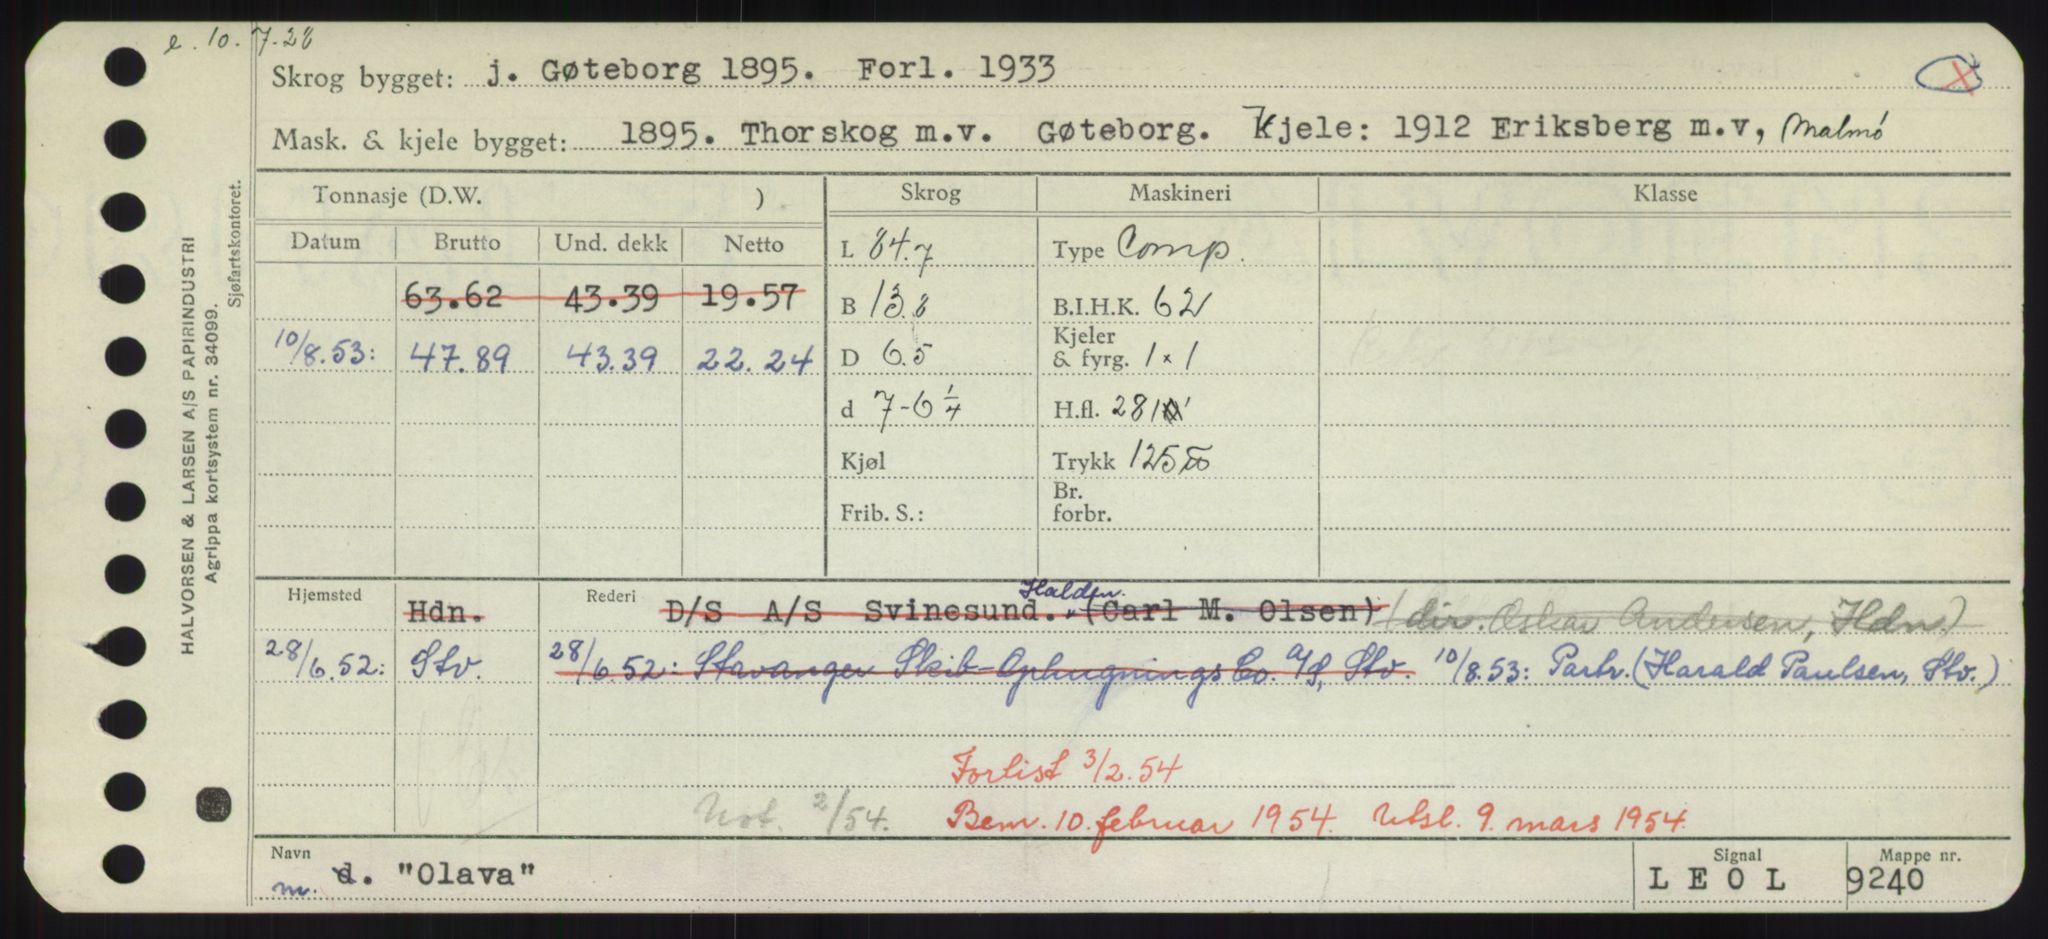 e. 10. 7-28
Skrog bygget: j. Gøteborg 1895. Forl. 1933
Mask. & kjele bygget: 1895. Thorskog m.v. Gøteborg. Kjele: 1912 Eriksberg m.v, Malmö
Tonnasje (D.W. ) Skrog Maskineri Klasse
Datum Brutto Und. dekk Netto L 84.7 Type Comp.
63.62 43.39 19.57 B 13.8 B.I.H.K. 62
10/8.53: 47.89 43.39 22.24 D 6.5 Kjeler & fyrg. 1 x 1
d 7-6 1/4 H.fl. 281
Kjøl Trykk 125
Frib. S.: Br. forbr.
Hjemsted Hdn. Rederi D/S A/S Svinesund. Halden. (Carl M. Olsen) (dir. Oskar Andersen, Hdn.)
28/6.52: Stv. 28/6.52: Stavanger Skib-Ophugnings Co. A/S, Stv. 10/8.53: Partr. (Harald Paulsen, Stv.)
Forlist 3/2.54
Not. 2/54. Bem. 10. februar 1954. Utsl. 9. mars 1954
Navn Signal Mappe nr.
m. d. "Olava" L E O L 9240
HALVORSEN & LARSEN A/S PAPIRINDUSTRI
Agrippa kortsystem nr. 34099.
Sjøfartskontoret.